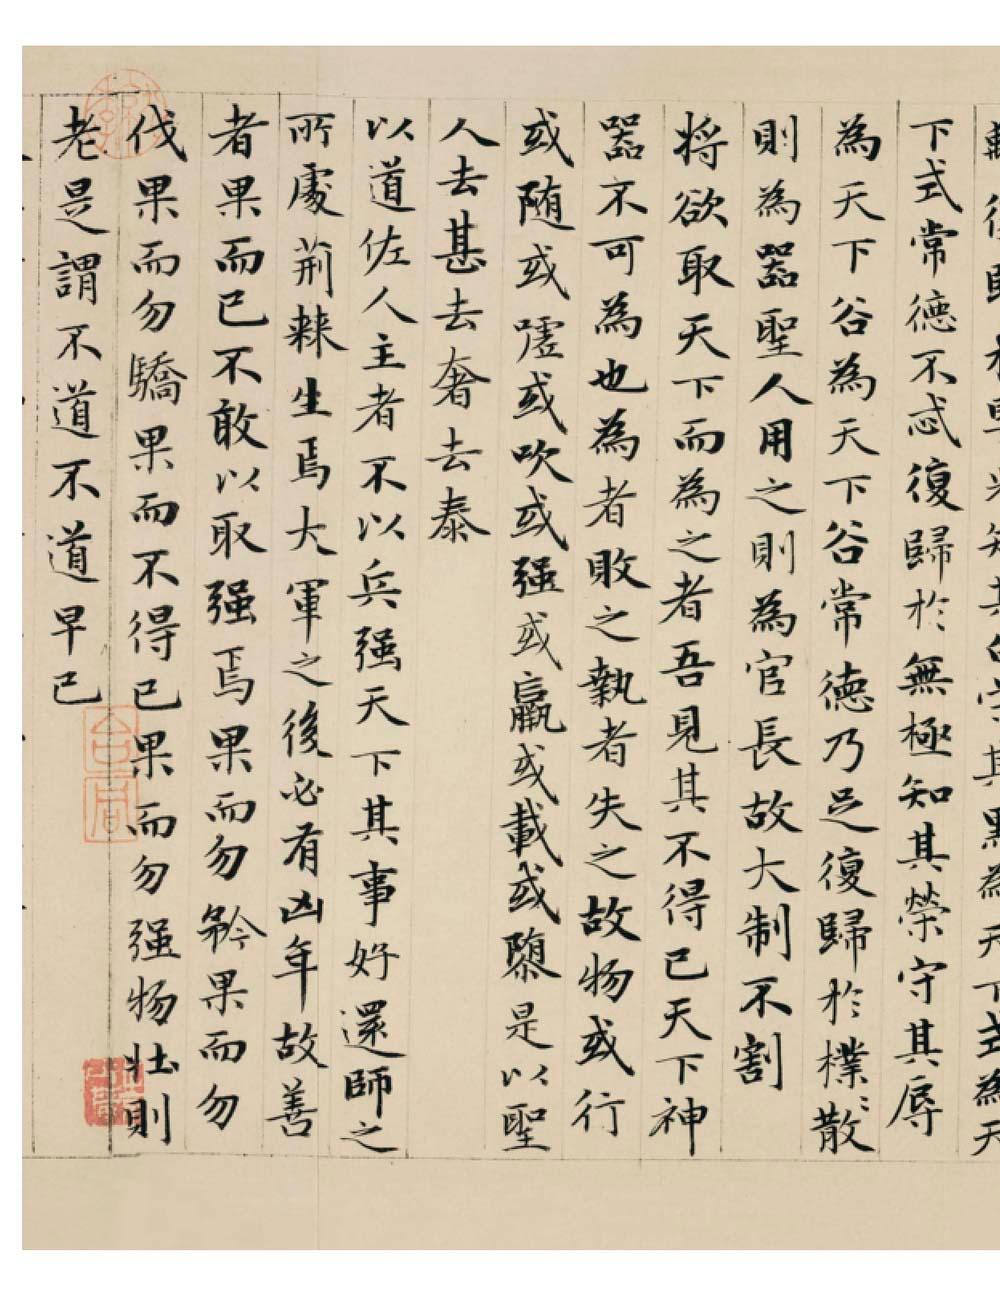 知其白守其黑為天下式為天
下式常德不忒復歸於無極知其榮守其辱
為天下谷為天下谷常德乃足復歸於樸〻散
則為器聖人用之則為官長故大制不割
將欲取天下而為之者吾見其不得已天下神
器不可為也為者敗之執者失之故物或行
或随或嘘或吹或强或羸或載或隳是以聖
人去甚去奢去泰
以道佐人主者不以兵强天下其事好還師之
所處荆棘生焉大軍之後必有凶年故善
者果而已不敢以取强焉果而勿矜果而勿
伐果而勿驕果而不得已果而勿强物壯則
老是謂不道不道早已